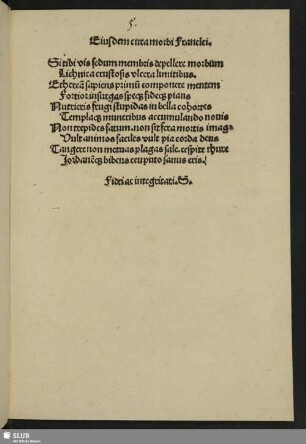 5.
Eiusdem cura morbi Francici.
Si tibi vis fedum membris depellere morbum
Lichnica crustosis vlcera linitibus.
Ethereā sapiens primū componere mentem
Fortior insurgas specꝫ fidecꝫ pians
Nutrieris frugi stupidas in bella cohortes
Templacꝫ muneribus accumulando nouis
Non trepides fatum. non sit fera mortis imago
Vult animos faciles vult pia corda deus
Tangere non metuas plagas sale. cespite thure
Jordanēcꝫ bibens eruputo sanus eris.
Fidei ac integritati. S.
SLUB